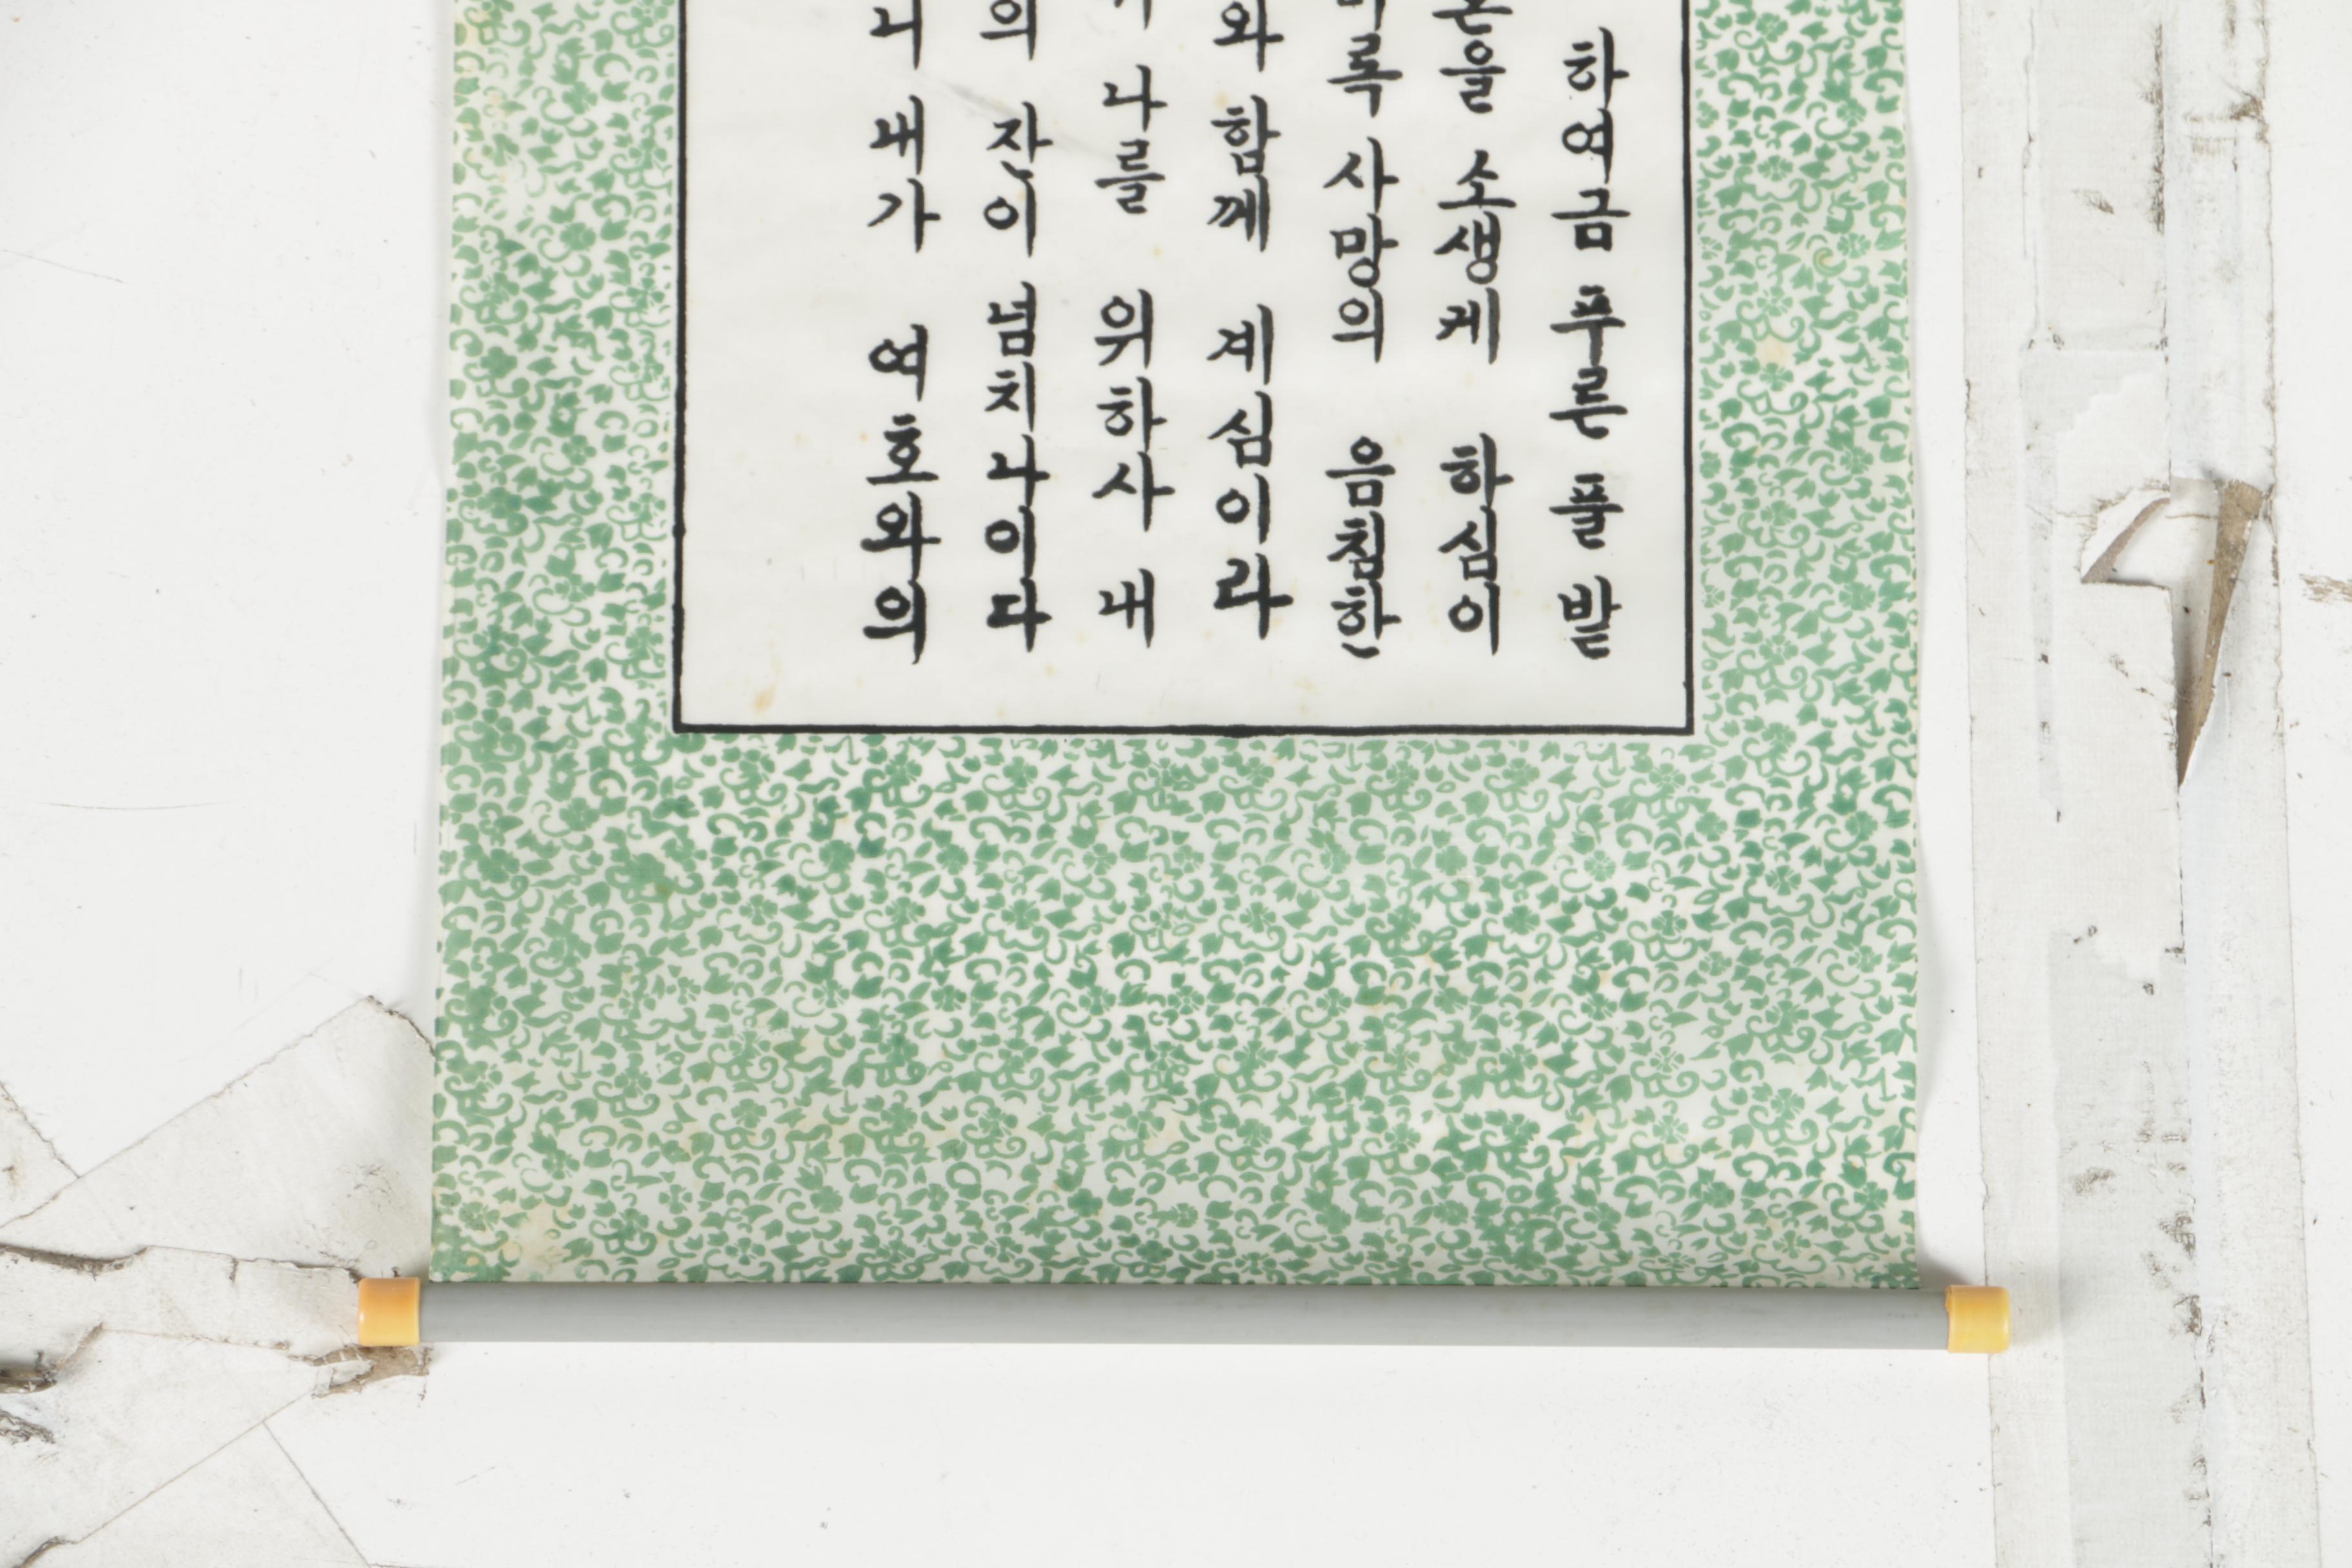 하여금 푸른 풀 밭
혼을 소생케 하심이
록 사망의 음침한
와 함께 계심이라
나를 위하사 내
의 잔이 넘치나이다
니 내가 여호와의